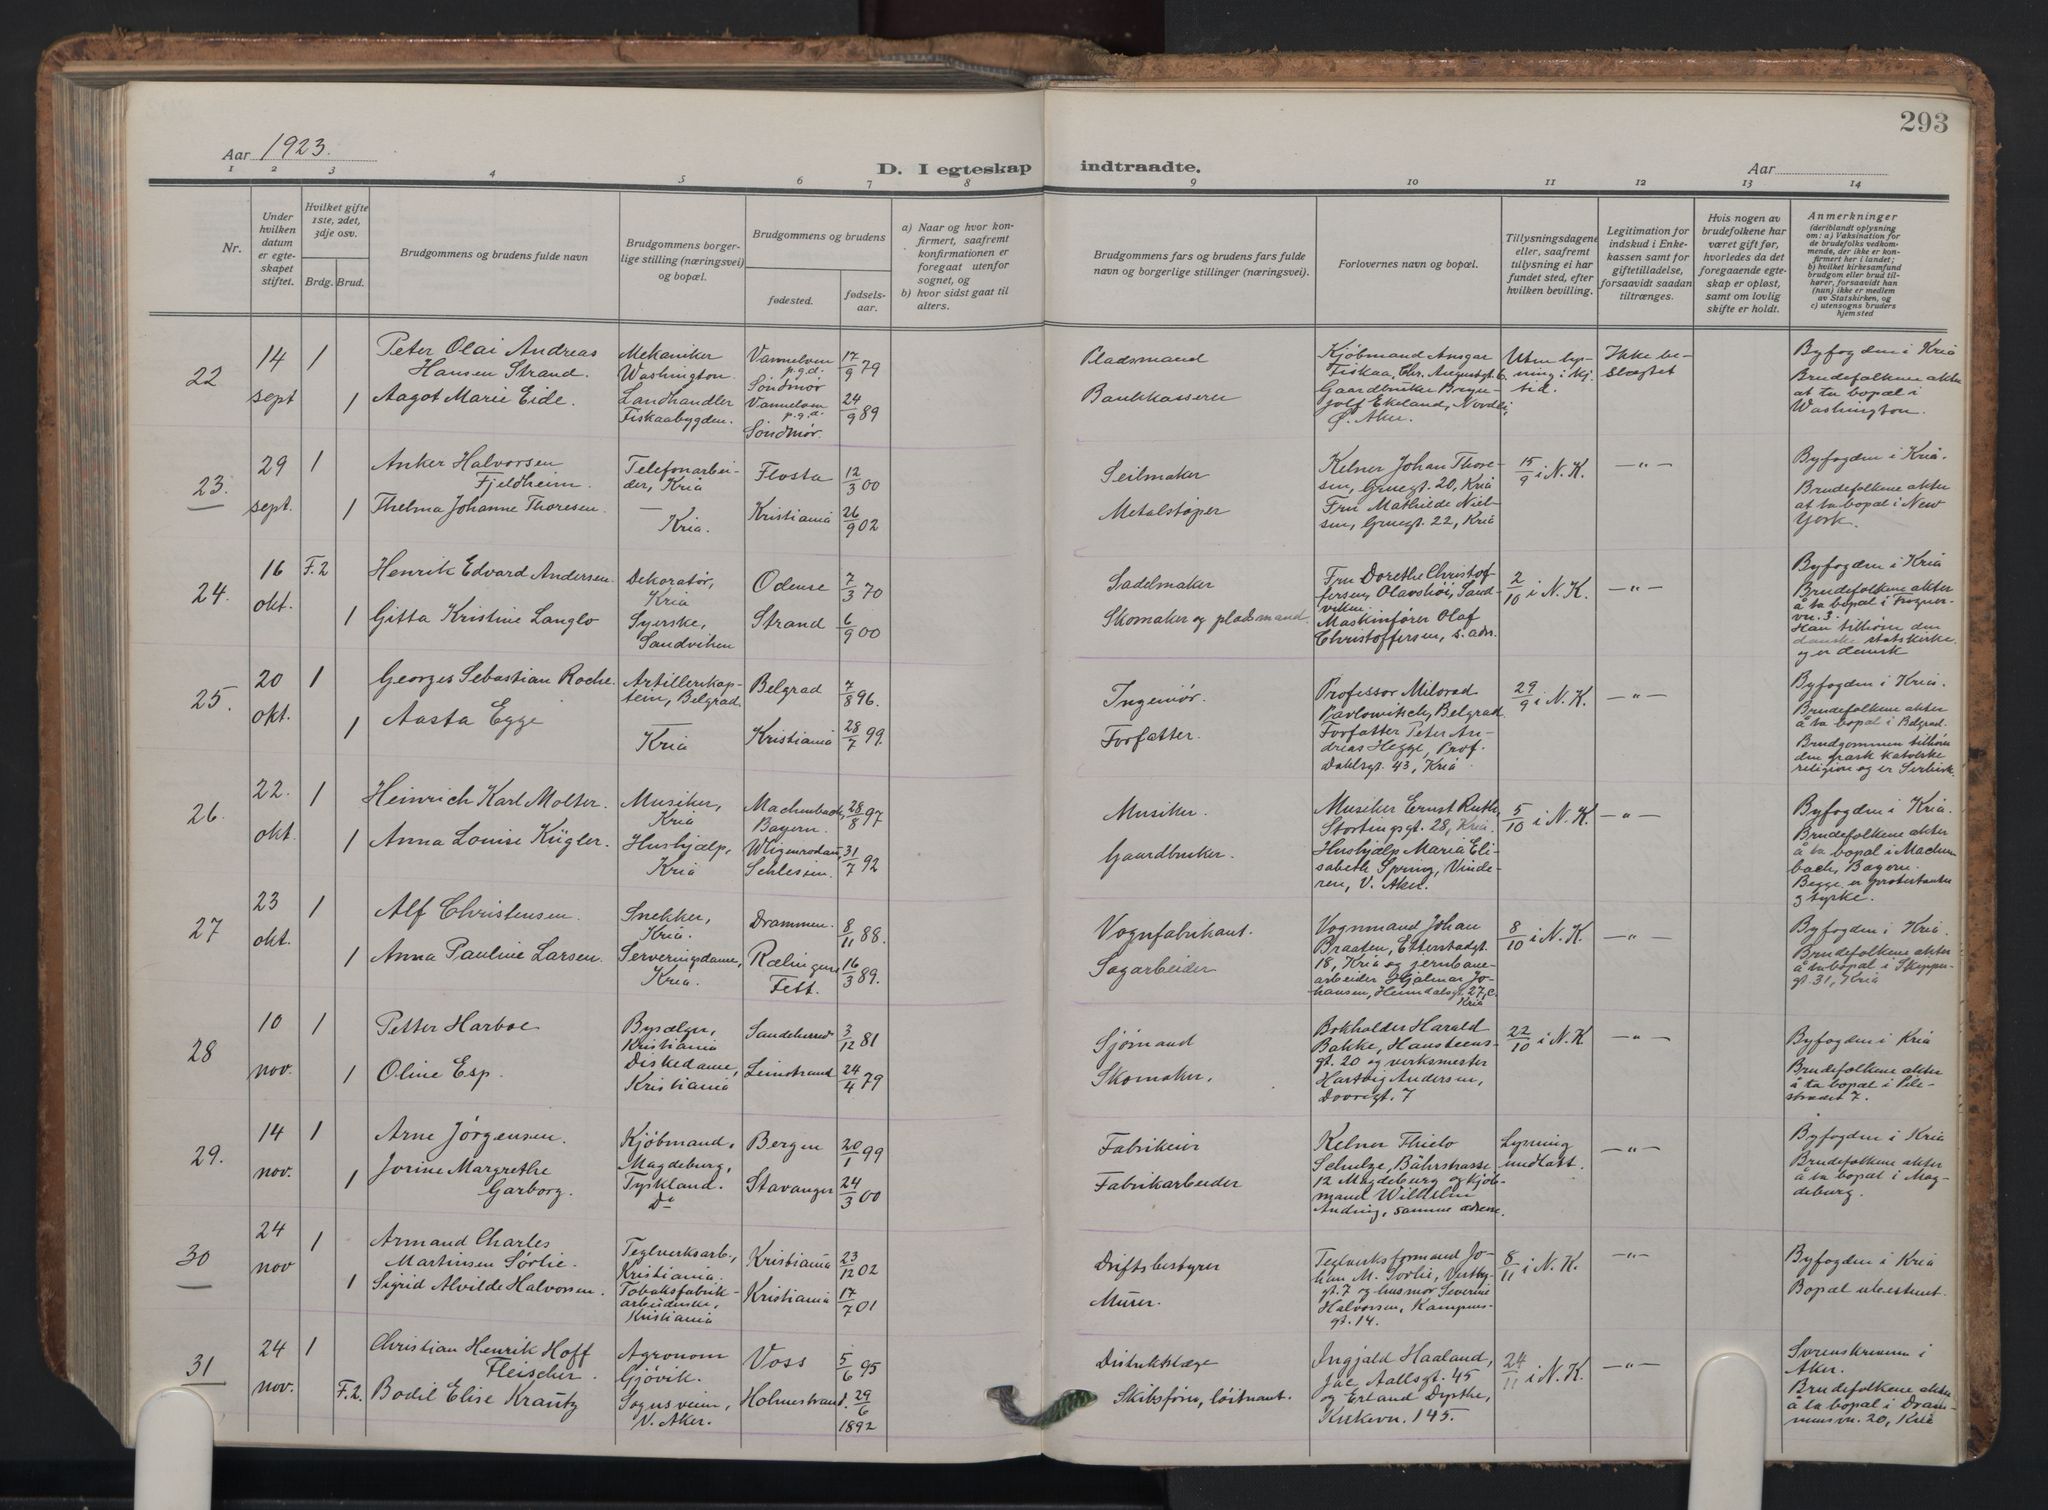 293
Aar 1923.
D. I egteskap indtraadte.
Aar
1 2 3 4 5 6 7 8 9 10 11 12 13 14
Nr.
Under hvilken datum er egteskapet stiftet.
Hvilket gifte 1ste, 2det, 3dje osv.
Brdg. Brud.
Brudgommens og brudens fulde navn
Brudgommens borgerlige stilling (næringsvei) og bopæl.
Brudgommens og brudens
fødested.
fødselsaar.
a) Naar og hvor konfirmert, saafremt konfirmationen er foregaat utenfor sognet, og
b) hvor sidst gaat til alters.
Brudgommens fars og brudens fars fulde navn og borgerlige stillinger (næringsvei).
Forlovernes navn og bopæl.
Tillysningsdagene eller, saafremt tillysning ei har fundet sted, efter hvilken bevilling.
Legitimation for indskud i Enkekassen samt for giftetilladelse, forsaavidt saadan tiltrænges.
Hvis nogen av brudefolkene har været gift før, hvorledes da det foregaaende egteskap er opløst, samt om lovlig skifte er holdt.
Anmerkninger (deriblandt oplysning om: a) Vaksination for de brudefolks vedkommende, der ikke er konfirmert her i landet; b) hvilket kirkesamfund brudgom eller brud tilhører, forsaavidt han (hun) ikke er medlem av Statskirken, og c) utensogns bruders hjemsted
22 14 sept 1 Peter Olai Andreas Hansen Strand. Mekaniker Washington. Vannelven p.g.d. Söndmör 17/9 79 Pladsmand
1 Aagot Marie Eide. Landhandler Fiskaabygden. Vannelven p.g.d. Söndmör. 24/9 89 Bankkasserer
Kjøbmand Ansgar Fiskaa, Chr. Augustsgt. 6. Gaardbruker Ekeland, Ø. Aker.
Ikke beslægtet
Byfogden i Kria
Brudefolkene akter at ta bopæl i Washington.
23. 29 sept. 1 Anker Halvorsen Fjeldheim. Telefonarbeider, Kria Flosta 12/3 00 Seilmaker
1 Thelma Johanne Thoresen. — Kria. Kristiania 26/9 02 Metalstøper
Kelner Johan Thoresen, Gruegt. 20, Kria
Fru Mathilde Nielsen, Gruegt. 22, Kria
15/9 i N. K. —"—
Byfogden i Kria.
Brudefolkene akter at ta bopæl i New York.
24. 16 okt. F.2 Henrik Edvard Andersen Dekoratør, Kria Odense 7/3 70 Sadelmaker
1 Gitta Kristine Langlo Syerske, Sandviken Strand 6/9 00 Skomaker og pladsmand.
Fru Dorethe Christoffersen, Olavshöi, Sandviken
Maskinfører Olaf Christoffersen, s. adr.
2/10 i N. K. —"—
Byfogden i Kria
Brudefolkene akter å ta bopæl i Frognervn. 3.
Han tilhører den danske statskirke og er dansk
25. 20 okt 1 Georges Sebastian Roche. Artillerikaptein, Belgrad Belgrad 7/8 96. Ingeniør.
1 Aasta Egge — Kria Kristiania 28/7 99. Forfatter.
Professor Milorad Pavlowitsch, Belgrad
Forfatter Peter Andreas Hegge, Prof. Dahlsgt. 43, Kria.
29/9 i N. K. —"—
Byfogden i Kria.
Brudefolkene akter å ta bopæl i Belgrad.
Brudgommen tilhører den græsk katolske religion og er Serbisk.
26. 22. okt 1 Heinrich Karl Molter. Musiker, Kria Machenbach, Bayern. 28/8 97 Musiker.
1 Anna Louise Kügler. Hushjælp, Kria Schlesien. 31/7 92 Gaardbruker.
Musiker Ernst Ruth, Stortingsgt. 28, Kria.
Hushjælp Maria Elisabeth Spring, Vinderen, V. Aker.
5/10 i N. K. —"—
Byfogden i Kria.
Brudefolkene akter å ta bopæl i Machenbach, Bayern.
Begge er protestanter og tyske.
27 23 okt. 1 Alf Christensen. Snekker, Kria. Drammen. 8/11 88. Vognfabrikant.
1 Anna Pauline Larsen. Serveringsdame, Kria. Rælingen Fett. 16/3 89. Sagarbeider
Vognmand Johan Braaten, Etterstadgt. 18, Kria og jernbanearbeider Hjalmar Johansen, Heimdalsgt. 27, c. Kria
8/10 i N. K —"—
Byfogden i Kria.
Brudefolkene akter å ta bopæl i Skippergt. 31, Kria
28 10 nov. 1 Petter Harboe Bysælger, Kristiania Sandeherred 3/12 81 Sjømand
1 Oline Esp. Diskedame, Kristiania Leinstrand 24/4 79 Skomaker.
Bokholder Harald Bakke, Hansteensgt. 20 og verksmester Hartvig Andersen, Dovregt. 7
22/10 i N. K —"—
Byfogden i Kria
Brudefolkene akter å ta bopæl i Pilestrædet 7.
29. 14 nov. 1 Arne Jörgensen. Kjöbmand, Magdeburg, Tyskland. Bergen 20/1 99 Fabrikeier
1 Jorine Margrethe Garborg. Do Stavanger 24/3 00 Fabrikarbeider
Kelner Thielo Schulze, Bährstrasse 12 Magdeburg og kjöbmand Wilhelm Anding, samme adresse.
Lysning undlatt. —"—
Byfogden i Kria
Brudefolkene akter å ta bopæl i Magdeburg.
30 24 nov 1 Armand Charles Martinsen Sörlie. Teglverksarb., Kristiania. Kristiania 23/12 02 Driftsbestyrer
1 Sigrid Alvilde Halvorsen. Tobaksfabrikarbeiderske, Kristiania Kristiania 17/7 01 Murer.
Teglverksformand Johan M. Sorlie, gt. 7 og husmor Severine Halvorsen, Kampensgt. 14.
8/11 i N. K. —"—
Byfogden i Kria
Bopæl ubestemt.
31 24 nov. 1 Christian Henrik Hoff Fleischer. Agronom Gjøvik. Voss 5/6 95 Distriktslæge
F.2. Bodil Elise Krantz Sognsveien, V. Aker. Holmestrand. 29/6 1892 Skibsfører, løitnant.
Ingjald Haaland, Jac Aallsgt. 45 og Erland Dysthe, Kirkevn. 145.
24/11 i N. K. —"—
Sorenskriveren i Aker.
Brudefolkene akter å ta bopæl i Drammensvn. 20, Kria